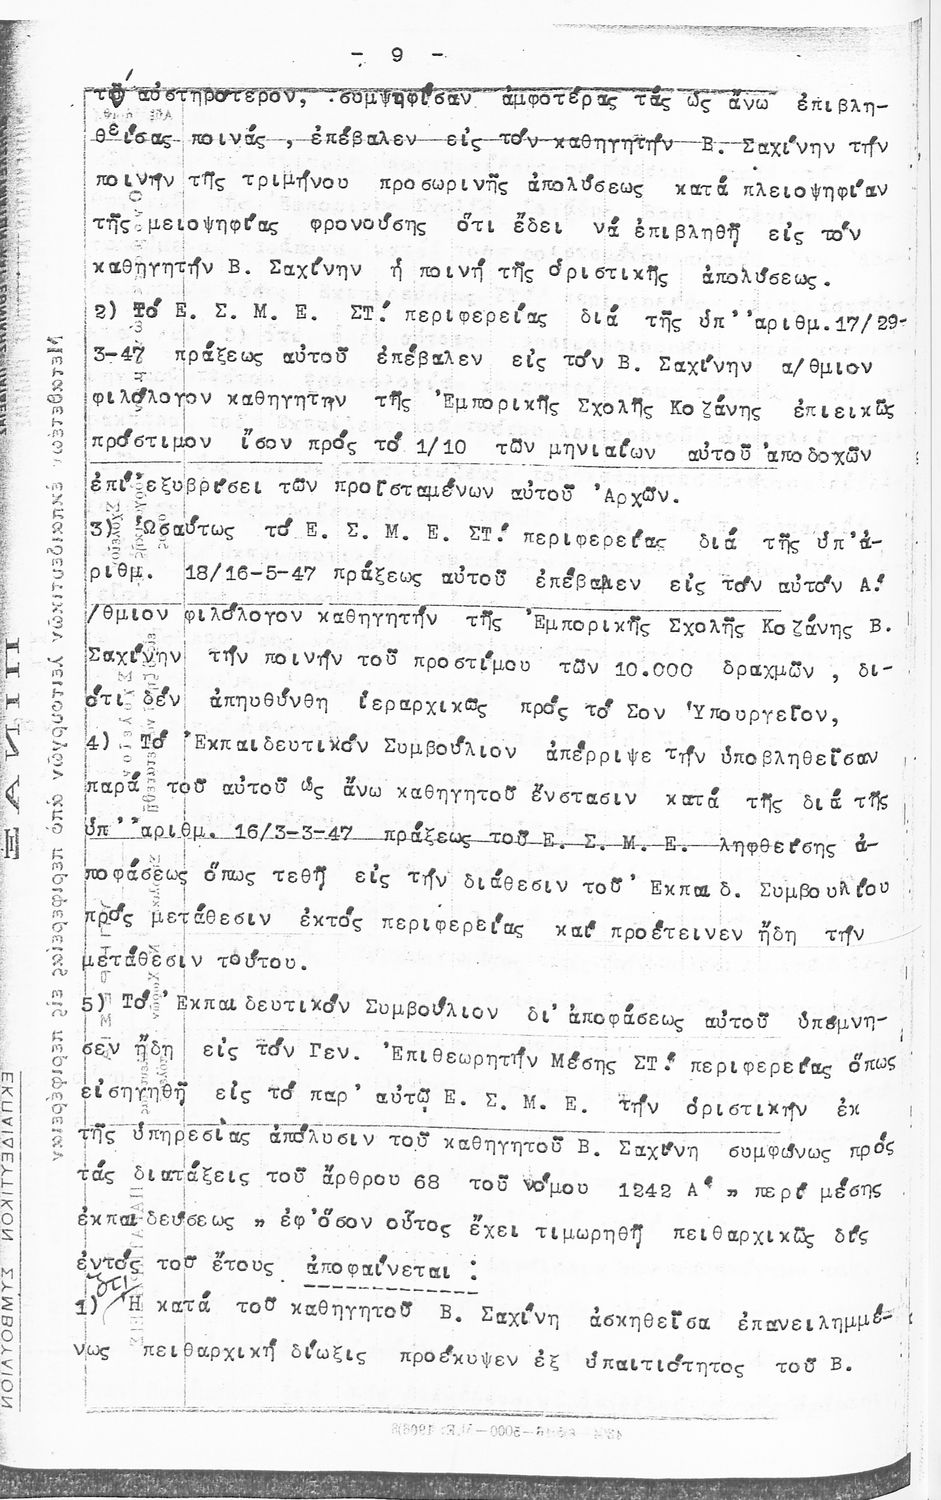 - 9 -
τό αὐστηρότερον, συμψηφίσαν ἀμφοτέρας τάς ὡς ἄνω ἐπιβλη-
θείσας ποινάς , ἐπέβαλεν εἰς τόν καθηγητήν Β. Σαχίνην τήν
ποινήν τῆς τριμήνου προσωρινῆς ἀπολύσεως κατά πλειοψηφίαν
τῆς μειοψηφίας φρονούσης ὅτι ἔδει νά ἐπιβληθῇ εἰς τόν
καθηγητήν Β. Σαχίνην ἡ ποινή τῆς ὁριστικῆς ἀπολύσεως.
2) Τό Ε. Σ. Μ. Ε. ΣΤ! περιφερείας διά τῆς ὑπ''αριθμ.17/29-
3-47 πράξεως αὐτοῦ ἐπέβαλεν εἰς τόν Β. Σαχίνην α/θμιον
φιλόλογον καθηγητήν τῆς Ἐμπορικῆς Σχολῆς Κοζάνης ἐπιεικῶς
πρόστιμον ἴσον πρός τό 1/10 τῶν μηνιαίων αὐτοῦ ἀποδοχῶν
ἐπί ἐξυβρίσει τῶν προϊσταμένων αὐτοῦ Ἀρχῶν.
3) Ὡσαύτως τό Ε. Σ. Μ. Ε. ΣΤ! περιφερείας διά τῆς ὑπ'ἀ-
ριθμ. 18/16-5-47 πράξεως αὐτοῦ ἐπέβαλεν εἰς τόν αὐτόν Α!
/θμιον φιλόλογον καθηγητήν τῆς Ἐμπορικῆς Σχολῆς Κοζάνης Β.
Σαχίνην τήν ποινήν τοῦ προστίμου τῶν 10.000 δραχμῶν , δι-
ότι δέν ἀπηυθύνθη ἱεραρχικῶς πρός τό Σον Ὑπουργεῖον,
4) Τό Ἐκπαιδευτικόν Συμβούλιον ἀπέρριψε τήν ὑποβληθεῖσαν
παρά τοῦ αὐτοῦ ὡς ἄνω καθηγητοῦ ἔνστασιν κατά τῆς διά τῆς
ὑπ''αριθμ. 16/3-3-47 πράξεως τοῦ Ε. Σ. Μ. Ε. ληφθείσης ἀ-
ποφάσεως ὅπως τεθῇ εἰς τήν διάθεσιν τοῦ Ἐκπαιδ. Συμβουλίου
πρός μετάθεσιν ἐκτός περιφερείας καί προέτεινεν ἤδη τήν
μετάθεσιν τούτου.
5) Τό Ἐκπαιδευτικόν Συμβούλιον δι'ἀποφάσεως αὐτοῦ ὑπέμνη-
σεν ἤδη εἰς τόν Γεν. Ἐπιθεωρητήν Μέσης ΣΤ! περιφερείας ὅπως
εἰσηγηθῇ εἰς τό παρ' αὐτῷ Ε. Σ. Μ. Ε. τήν ὁριστικήν ἐκ
τῆς ὑπηρεσίας ἀπόλυσιν τοῦ καθηγητοῦ Β. Σαχίνη συμφώνως πρός
τάς διατάξεις τοῦ ἄρθρου 68 τοῦ νόμου 1242 Α' „ περί μέσης
ἐκπαιδεύσεως „ ἐφ'ὅσον οὗτος ἔχει τιμωρηθῇ πειθαρχικῶς δίς
ἐντός τοῦ ἔτους ἀποφαίνεται :
ὅτι
1) Ἡ κατά τοῦ καθηγητοῦ Β. Σαχίνη ἀσκηθεῖσα ἐπανειλημμέ-
νως πειθαρχική δίωξις προέκυψεν ἐξ ὑπαιτιότητος τοῦ Β.
Μεταθέσεων ἐκπαιδευτικῶν λειτουργῶν ἀπό περιφερείας εἰς περιφέρειαν
ΕΚΠΑΙΔΕΥΤΙΚΟΝ ΣΥΜΒΟΥΛΙΟΝ